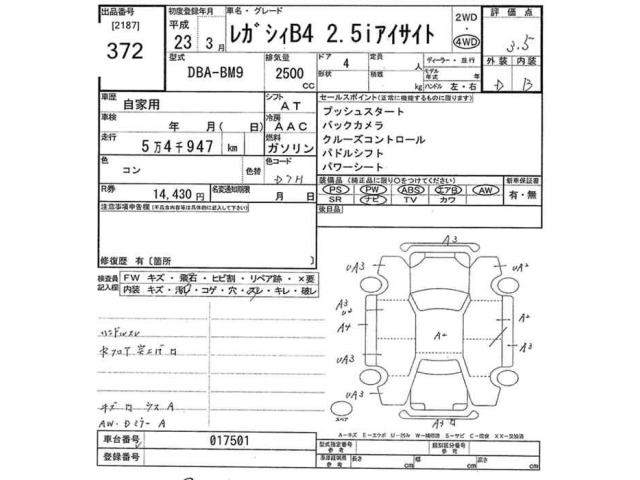 出品番号
[2187]
372
初度登録年月
平成
23年 3月
車名・グレード
レガシィB4 2.5iアイサイト
2WD
・
4WD
評価点
3.5
外装 内装
D B
型式
DBA-BM9
排気量
2500
cc
ドア
4
形状
定員
人
積載
kg
ディーラー・並行
モデル年式 年
ハンドル 左・右
車歴
自家用
シフト
AT
車検
年 月( 日)
冷房
AAC
走行
5万4千947 km
燃料
ガソリン
色
コン
色替
色コード
D7H
R券
14,430円
名変通知期限
月 日
セールスポイント(正常に機能するものに限ります)
プッシュスタート
バックカメラ
クルーズコントロール
パドルシフト
パワーシート
装備品 (純正品に限り○をつけてください)
PS PW ABS エアB AW
SR ナビ TV カワ
新車保証書
有・無
後日品
注意事項申告欄(不具合内容等は具体的に記入して下さい)
修復歴 有〔箇所 〕
検査員
記入欄
FW キズ・飛石・ヒビ割・リペア跡・×要
内装 キズ・汚れ・コゲ・穴・スレ・キレ・破レ
ハンドルスレ
AW・Dミラー A
車台番号
017501
登録番号
A3
UA3
UA2
A3
U2
A4
UA3
A2
A3
UA3
スペア
A-キズ E-エクボ U-凹み W-補修跡 S-サビ C-腐食 XX-交換済
型式指定番号
参考
類別区分番号
参考
車庫証明用
参考
長さ cm
幅 cm
高さ cm